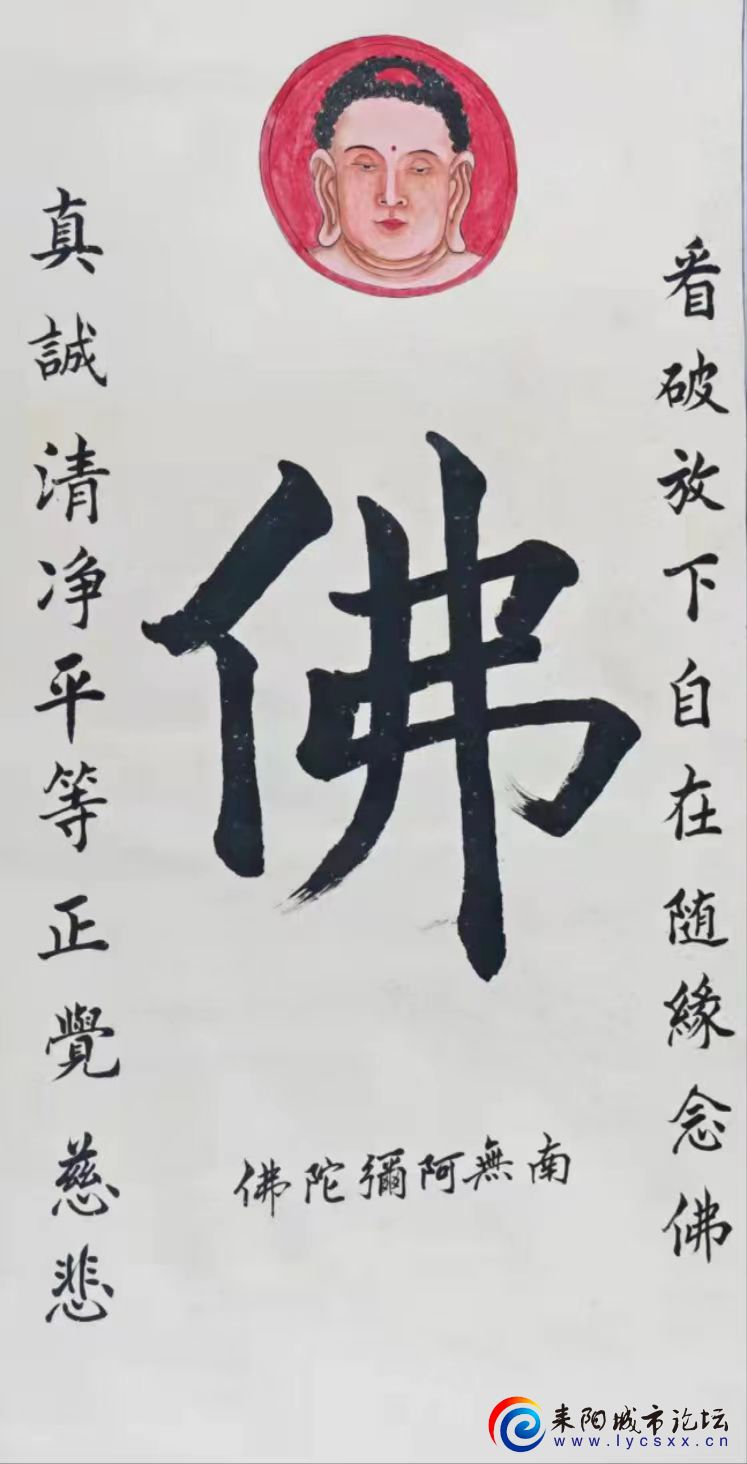 佛
真誠清净平等正覺慈悲
看破放下自在随緣念佛
南無阿彌陀佛
耒阳城市论坛
www.lycsxx.cn